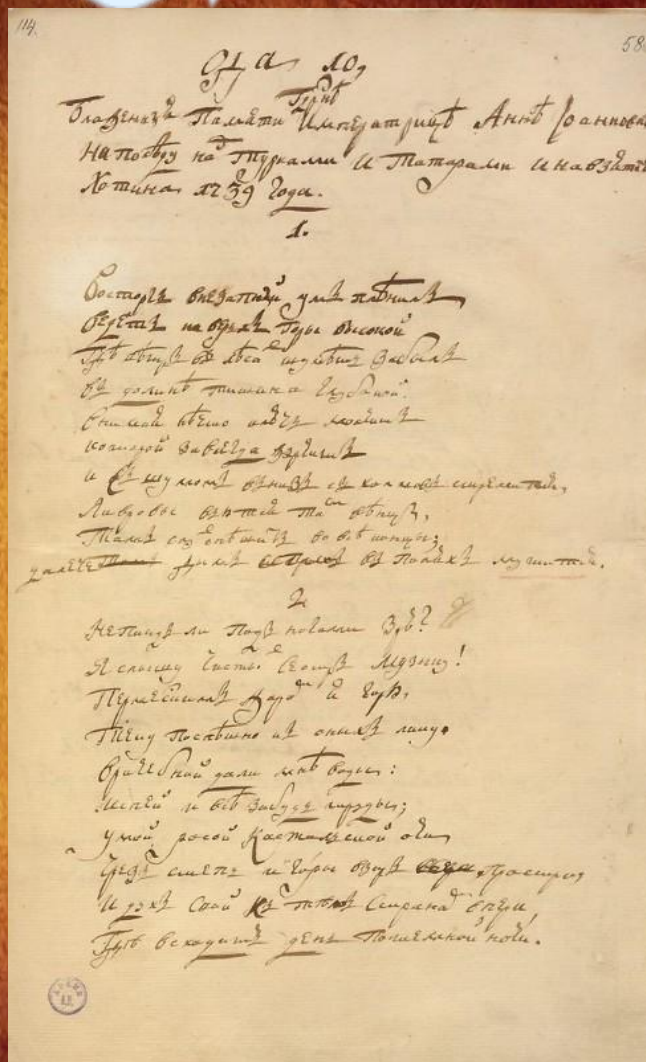 114.
58
Ода 10,
Гдрнѣ
Блаженныя Памяти Императрицѣ Аннѣ Іоанновн
На побѣду над Турками и Татарами и на взяті
Хотина 1739 года.
1.
Восторгъ внезапный умъ плѣнилъ
Ведетъ на верьхъ горы высокой
Гдѣ вѣтръ въ лѣсахъ шумѣть забылъ
Въ долинѣ тишина глубокой.
Внимая нѣчто ключь молчитъ
которой завсегда журчитъ
и съ шумомъ внизъ съ холмовъ стремится,
Лавровы вьются тамъ вѣнцы,
Тамъ слухъ спѣшитъ во всѣ концы;
далече дымъ въ поляхъ курится.
2
Не Пиндъ ли подъ ногами зрю?
Я слышу чистыхъ сестръ музыку!
Пермесскимъ жаромъ я горю,
Теку поспѣшно къ оныхъ лику.
Врачебной дали мнѣ воды:
Испей и всѣ забудь труды;
умой росой Кастальской очи
Чрезъ степь и горы взоръ простри
И духъ свой къ тѣмъ странамъ впери,
Гдѣ всходитъ день по темной ночи.